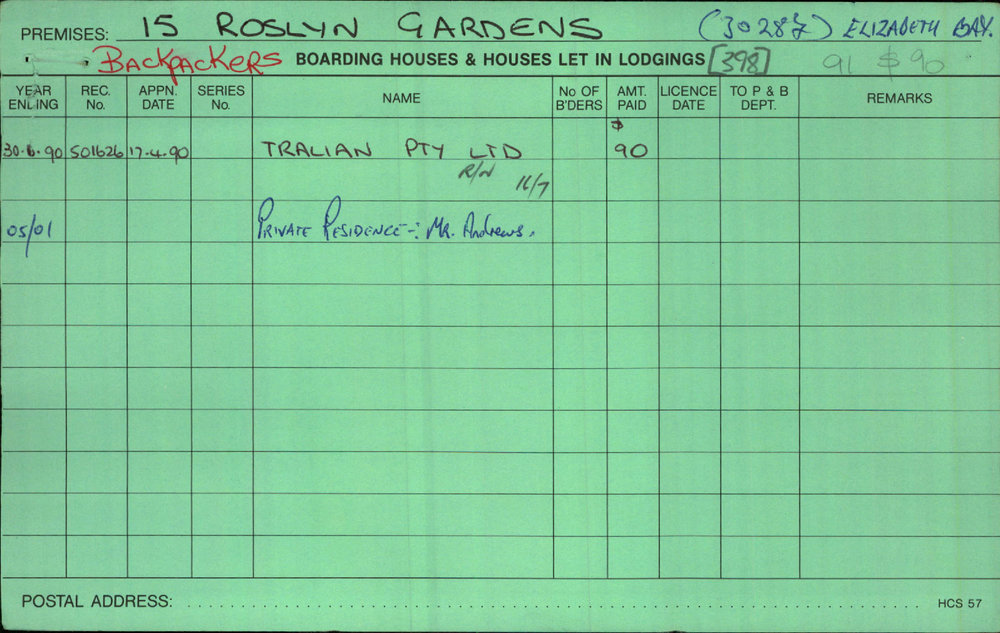 PREMISES: 15 ROSLYN GARDENS (30287) ELIZABETH BAY.
BACKPACKERS BOARDING HOUSES & HOUSES LET IN LODGINGS [398] 91 $90
YEAR ENDING REC. No. APPN. DATE SERIES No. NAME No OF B'DERS AMT. PAID LICENCE DATE TO P & B DEPT. REMARKS
$
30.6.90 501626 17.4.90 TRALIAN PTY LTD 90
R/N 16/7
05/01 PRIVATE RESIDENCE -: MR. Andrews.
POSTAL ADDRESS: HCS 57